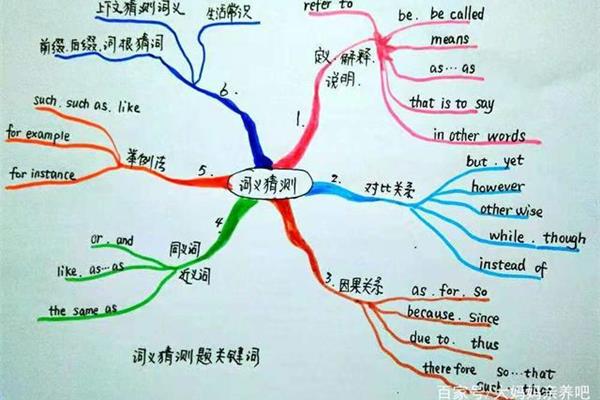 词义猜测
1.
定义.解释.
说明.
refer to
be. be called
means
as…as
that is to say
in other words
2.
对比关系
but. yet
however
otherwise
while. though
instead of
3.
因果关系
as. for. so
because. since
due to. thus
therefore so…that
such…that
4.
同义词
近义词
or. and
like. as…as
the same as
5.
举例法
such. such as. like
for example
for instance
6.
上下文猜测词义
生活常识
前缀.后缀.词根猜词
词义猜测题关键词
百家号/大妈妈亲养吧